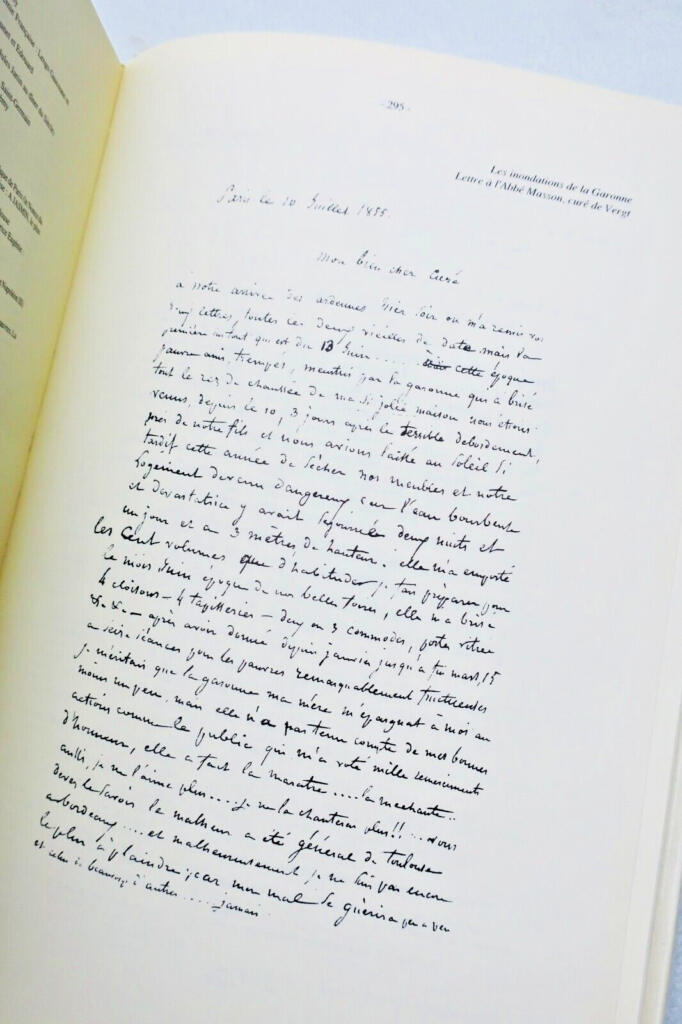 - 295 -
Les inondations de la Garonne
Lettre à l'Abbé Masson, curé de Vergt
Paris le 10 Juillet 1855.
Mon bien cher Curé
a notre arrivée des ardennes hier soir on m'a remis vos
lettres, toutes les deux vieilles de date mais la
première surtout qui est du 13 Juin.... cette époque
pauvre ami, trempés, meurtris par la garonne qui a brisé
tout le rez de chaussée de ma si jolie maison nous étions
venus, depuis le 10, 3 jours après le terrible débordement,
près de notre fils et nous avions laissé au soleil si
tardif cette année de sécher nos meubles et notre
logement devenu dangereux car l'eau bourbeuse
et dévastatrice y avait séjourné deux nuits et
un jour et a 3 mètres de hauteur. elle m'a emporté
les cent volumes que d'habitude je fais préparer pour
le mois Juin époque de nos belles foires, elle m'a brisé
4 cloisons - 4 tapisseries - deux ou 3 commodes, porte vitrée
&. &. - après avoir donné depuis janvier jusqu'à mars, 15
a seize séances pour les pauvres remarquablement fructueuses
je méritais que la garonne ma mère m'épargnat à moi au
moins un peu, mais elle n'a pas tenu compte de mes bonnes
actions comme le public qui m'a voté mille remerciments
d'honneur, elle a fait la maratre.... la mechante..
aussi, je ne l'aime plus.... je ne la chanterai plus!!... vous
devez le savoir le malheur a été général de Toulouse
a bordeaux.... et malheureusement je ne suis pas encore
le plus à plaindre, car mon mal se guérira peu a peu
et celui de beaucoup d'autres.... jamais.